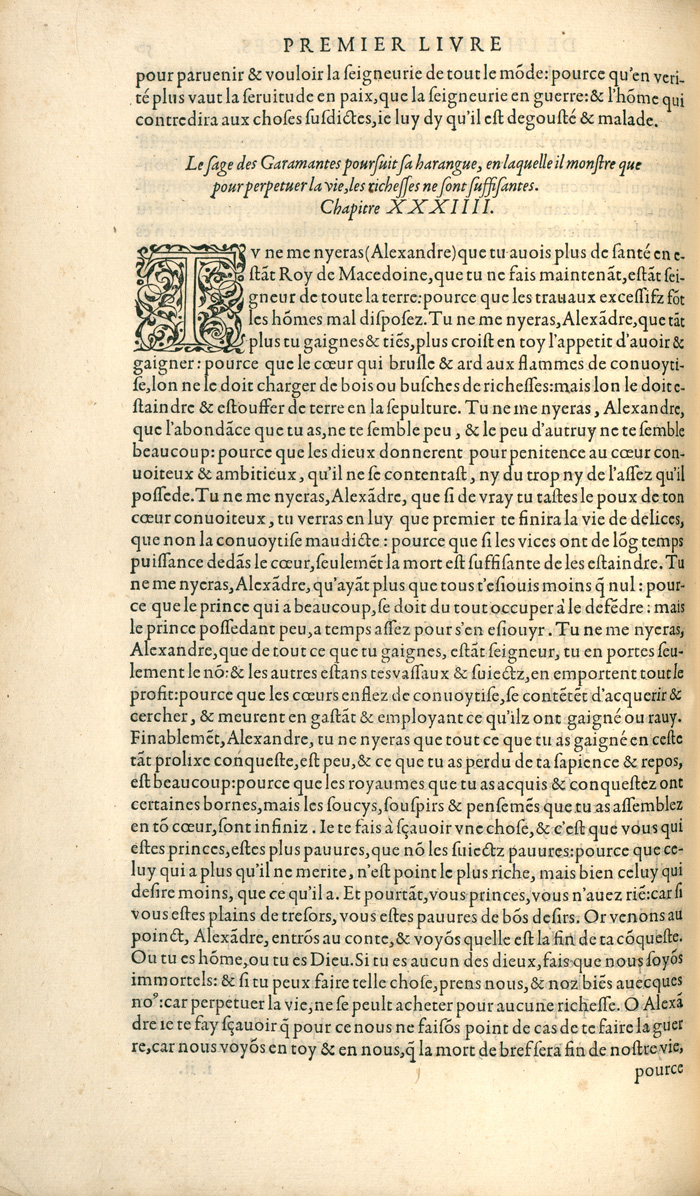 PREMIER LIVRE
pour paruenir & vouloir la ſeigneurie de tout le mõde: pource qu'en veri-
té plus vaut la ſeruitude en paix, que la ſeigneurie en guerre: & l'hõme qui
contredira aux choſes ſuſdictes, ie luy dy qu'il eſt degouſté & malade.
Le ſage des Garamantes pourſuit ſa harangue, en laquelle il monſtre que
pour perpetuer la vie, les richeſſes ne ſont ſuffiſantes.
Chapitre XXXIIII.
TV ne me nyeras (Alexandre) que tu auois plus de ſanté en e-
ſtãt Roy de Macedoine, que tu ne fais maintenãt, eſtãt ſei-
gneur de toute la terre: pource que les trauaux exceſſifz fõt
les hõmes mal diſpoſez. Tu ne me nyeras, Alexãdre, que tãt
plus tu gaignes & tiẽs, plus croiſt en toy l'appetit d'auoir &
gaigner: pource que le cœur qui bruſle & ard aux flammes de conuoyti-
ſe, lon ne le doit charger de bois ou buſches de richeſſes: mais lon le doit e-
ſtaindre & eſtouffer de terre en la ſepulture. Tu ne me nyeras, Alexandre,
que l'abondãce que tu as, ne te ſemble peu, & le peu d'autruy ne te ſemble
beaucoup: pource que les dieux donnerent pour penitence au cœur con-
uoiteux & ambitieux, qu'il ne ſe contentaſt, ny du trop ny de l'aſſez qu'il
poſſede. Tu ne me nyeras, Alexãdre, que ſi de vray tu taſtes le poux de ton
cœur conuoiteux, tu verras en luy que premier te finira la vie de délices,
que non la conuoytiſe maudicte: pource que ſi les vices ont de lõg temps
puiſſance dedãs le cœur, ſeulemẽt la mort eſt ſuffiſante de les eſtaindre. Tu
ne me nyeras, Alexãdre, qu'ayãt plus que tous t'eſiouis moins q̃ nul: pour-
ce que le prince qui a beaucoup, ſe doit du tout occuper à le defẽdre: mais
le prince poſſedant peu, a temps aſſez pour s'en eſiouyr. Tu ne me nyeras,
Alexandre, que de tout ce que tu gaignes, eſtãt ſeigneur, tu en portes ſeu-
lement le nõ: & les autres eſtans tes vaſſaux & ſuiectz, en emportent tout le
profit: pource que les cœurs enflez de conuoytiſe, ſe contẽtẽt d'acquerir &
cercher, & meurent en gaſtãt & employant ce qu'ilz ont gaigné ou rauy.
Finablemẽt, Alexandre, tu ne nyeras que tout ce que tu as gaigné en ceſte
tãt prolixe conqueſte, eſt peu, & ce que tu as perdu de ta ſapience & repos,
eſt beaucoup: pource que les royaumes que tu as acquis & conqueſtez ont
certaines bornes, mais les ſoucys, ſouſpirs & penſemẽs que tu as aſſemblez
en tõ cœur, ſont infiniz. Ie te fais à ſçauoir vne choſe, & c'eſt que vous qui
eſtes princes, eſtes plus pauures, que nõ les ſuiectz pauures: pource que ce-
luy qui a plus qu'il ne merite, n'eſt point le plus riche, mais bien celuy qui
deſire moins, que ce qu'il a. Et pourtãt, vous princes, vous n'auez riẽ: car ſi
vous eſtes plains de treſors, vous eſtes pauures de bõs deſirs. Or venons au
poinct, Alexãdre, entrõs au conte, & voyõs quelle eſt la fin de ta cõqueſte.
Ou tu es hõme, ou tu es Dieu. Si tu es aucun des dieux, fais que nous ſoyõs
immortels: & ſi tu peux faire telle choſe, prens nous, & noz biẽs auecques
noꝰ: car perpetuer la vie, ne ſe peult acheter pour aucune richeſſe. O Alexã
dre ie te fay ſçauoir q̃ pour ce nous ne faiſõs point de cas de te faire la guer
re, car nous voyõs en toy & en nous, q̃ la mort de bref ſera fin de noſtre vie,
pource